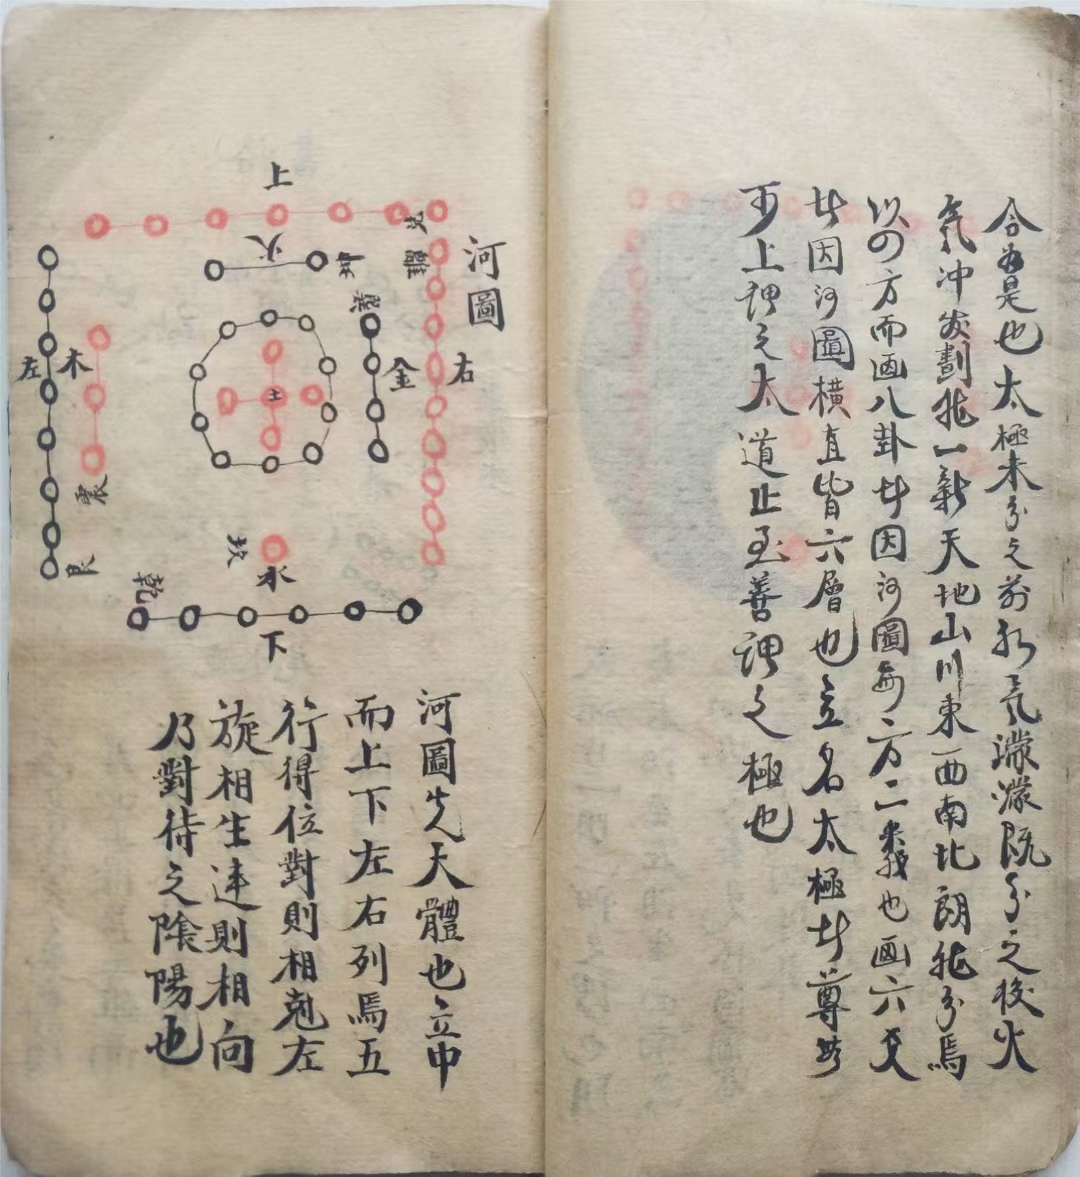 合為是也太極未分之前水氣濛濛既分之後火
氣冲發劃然一新天地山川東西南北朗然分焉
以四方而画八卦者因河圖每方二義也画六爻
者因河圖橫直皆六層也立名太極者尊無
可上謂之太道止至善謂之極也
河圖
上
火
兌
離
坤
巽
右
金
土
木
左
震
艮
坎
水
乾
下
河圖先天體也立中
而上下左右列焉五
行得位對則相剋左
旋相生違則相向
乃對待之陰陽也